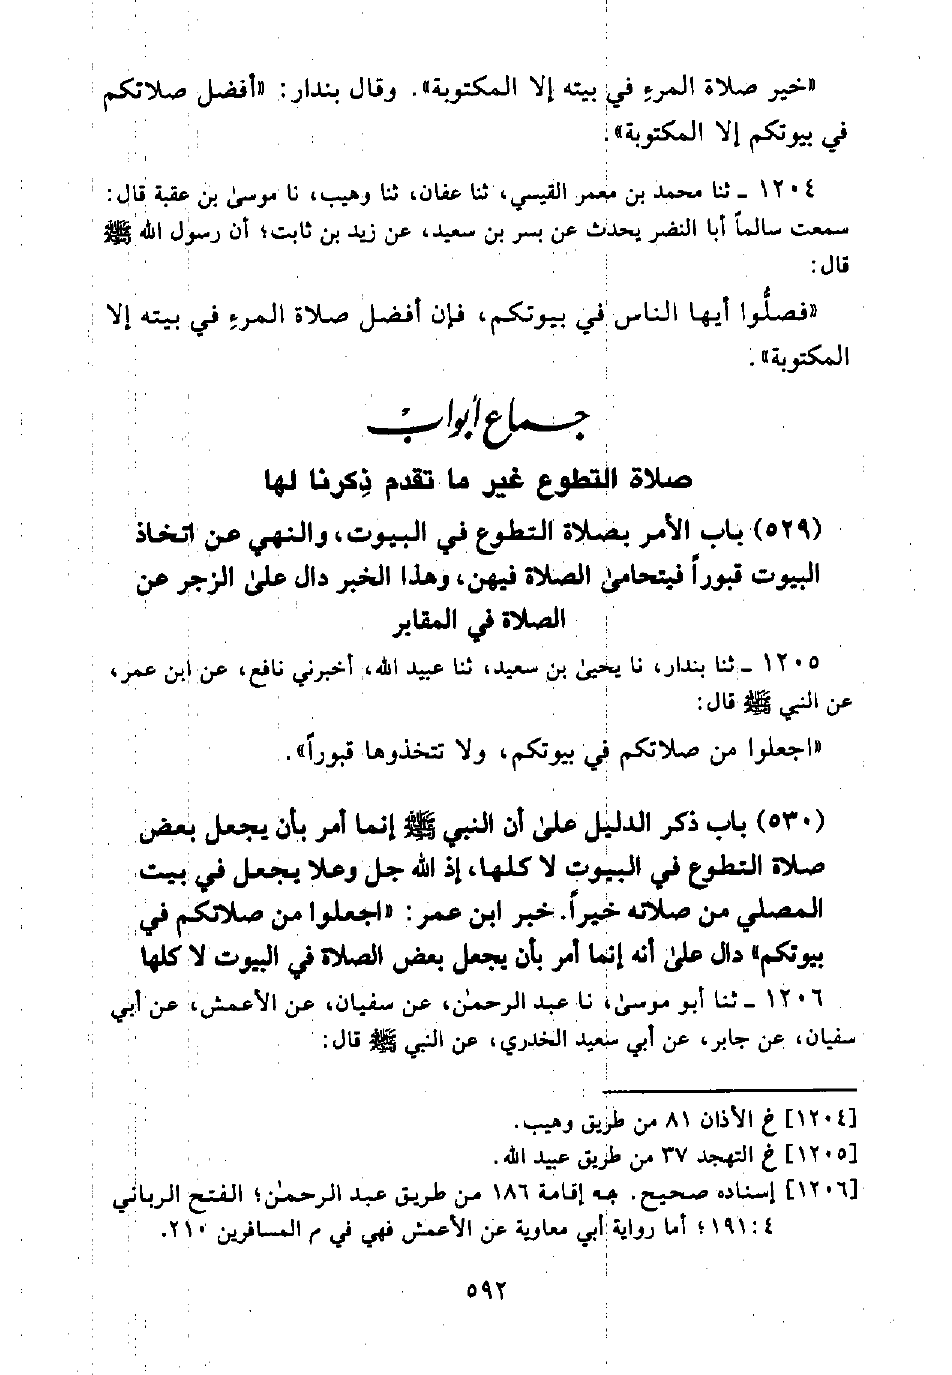 «خير صلاة المرءِ في بيته إلا المكتوبة». وقال بندار: «أفضل صلاتكم
في بيوتكم إلا المكتوبة».
١٢٠٤ ـ ثنا محمد بن معمر القيسي، ثنا عفان، ثنا وهيب، نا موسىٰ بن عقبة قال:
سمعت سالماً أبا النضر يحدث عن بسر بن سعيد، عن زيد بن ثابت؛ أن رسول الله ﷺ
قال:
«فصلُّوا أيها الناس في بيوتكم، فإن أفضل صلاة المرءِ في بيته إلا
المكتوبة».
جماع أبواب
صلاة التطوع غير ما تقدم ذِكرنا لها
(٥٢٩) باب الأمر بصلاة التطوع في البيوت، والنهي عن اتخاذ
البيوت قبوراً فيتحامىٰ الصلاة فيهن، وهذا الخبر دال علىٰ الزجر عن
الصلاة في المقابر
١٢٠٥ ـ ثنا بندار، نا يحيىٰ بن سعيد، ثنا عبيد الله، أخبرني نافع، عن ابن عمر،
عن النبي ﷺ قال:
«اجعلوا من صلاتكم في بيوتكم، ولا تتخذوها قبوراً».
(٥٣٠) باب ذكر الدليل علىٰ أن النبي ﷺ إنما أمر بأن يجعل بعض
صلاة التطوع في البيوت لا كلها، إذ الله جل وعلا يجعل في بيت
المصلي من صلاته خيراً. خبر ابن عمر: «اجعلوا من صلاتكم في
بيوتكم» دال علىٰ أنه إنما أمر بأن يجعل بعض الصلاة في البيوت لا كلها
١٢٠٦ ـ ثنا أبو موسىٰ، نا عبد الرحمنٰ، عن سفيان، عن الأعمش، عن أبي
سفيان، عن جابر، عن أبي سعيد الخدري، عن النبي ﷺ قال:
[١٢٠٤] خ الأذان ٨١ من طريق وهيب.
[١٢٠٥] خ التهجد ٣٧ من طريق عبيد الله.
[١٢٠٦] إسناده صحيح. جه إقامة ١٨٦ من طريق عبد الرحمنٰ؛ الفتح الرباني
٤: ١٩١؛ أما رواية أبي معاوية عن الأعمش فهي في م المسافرين ٢١٠.
٥٩٢